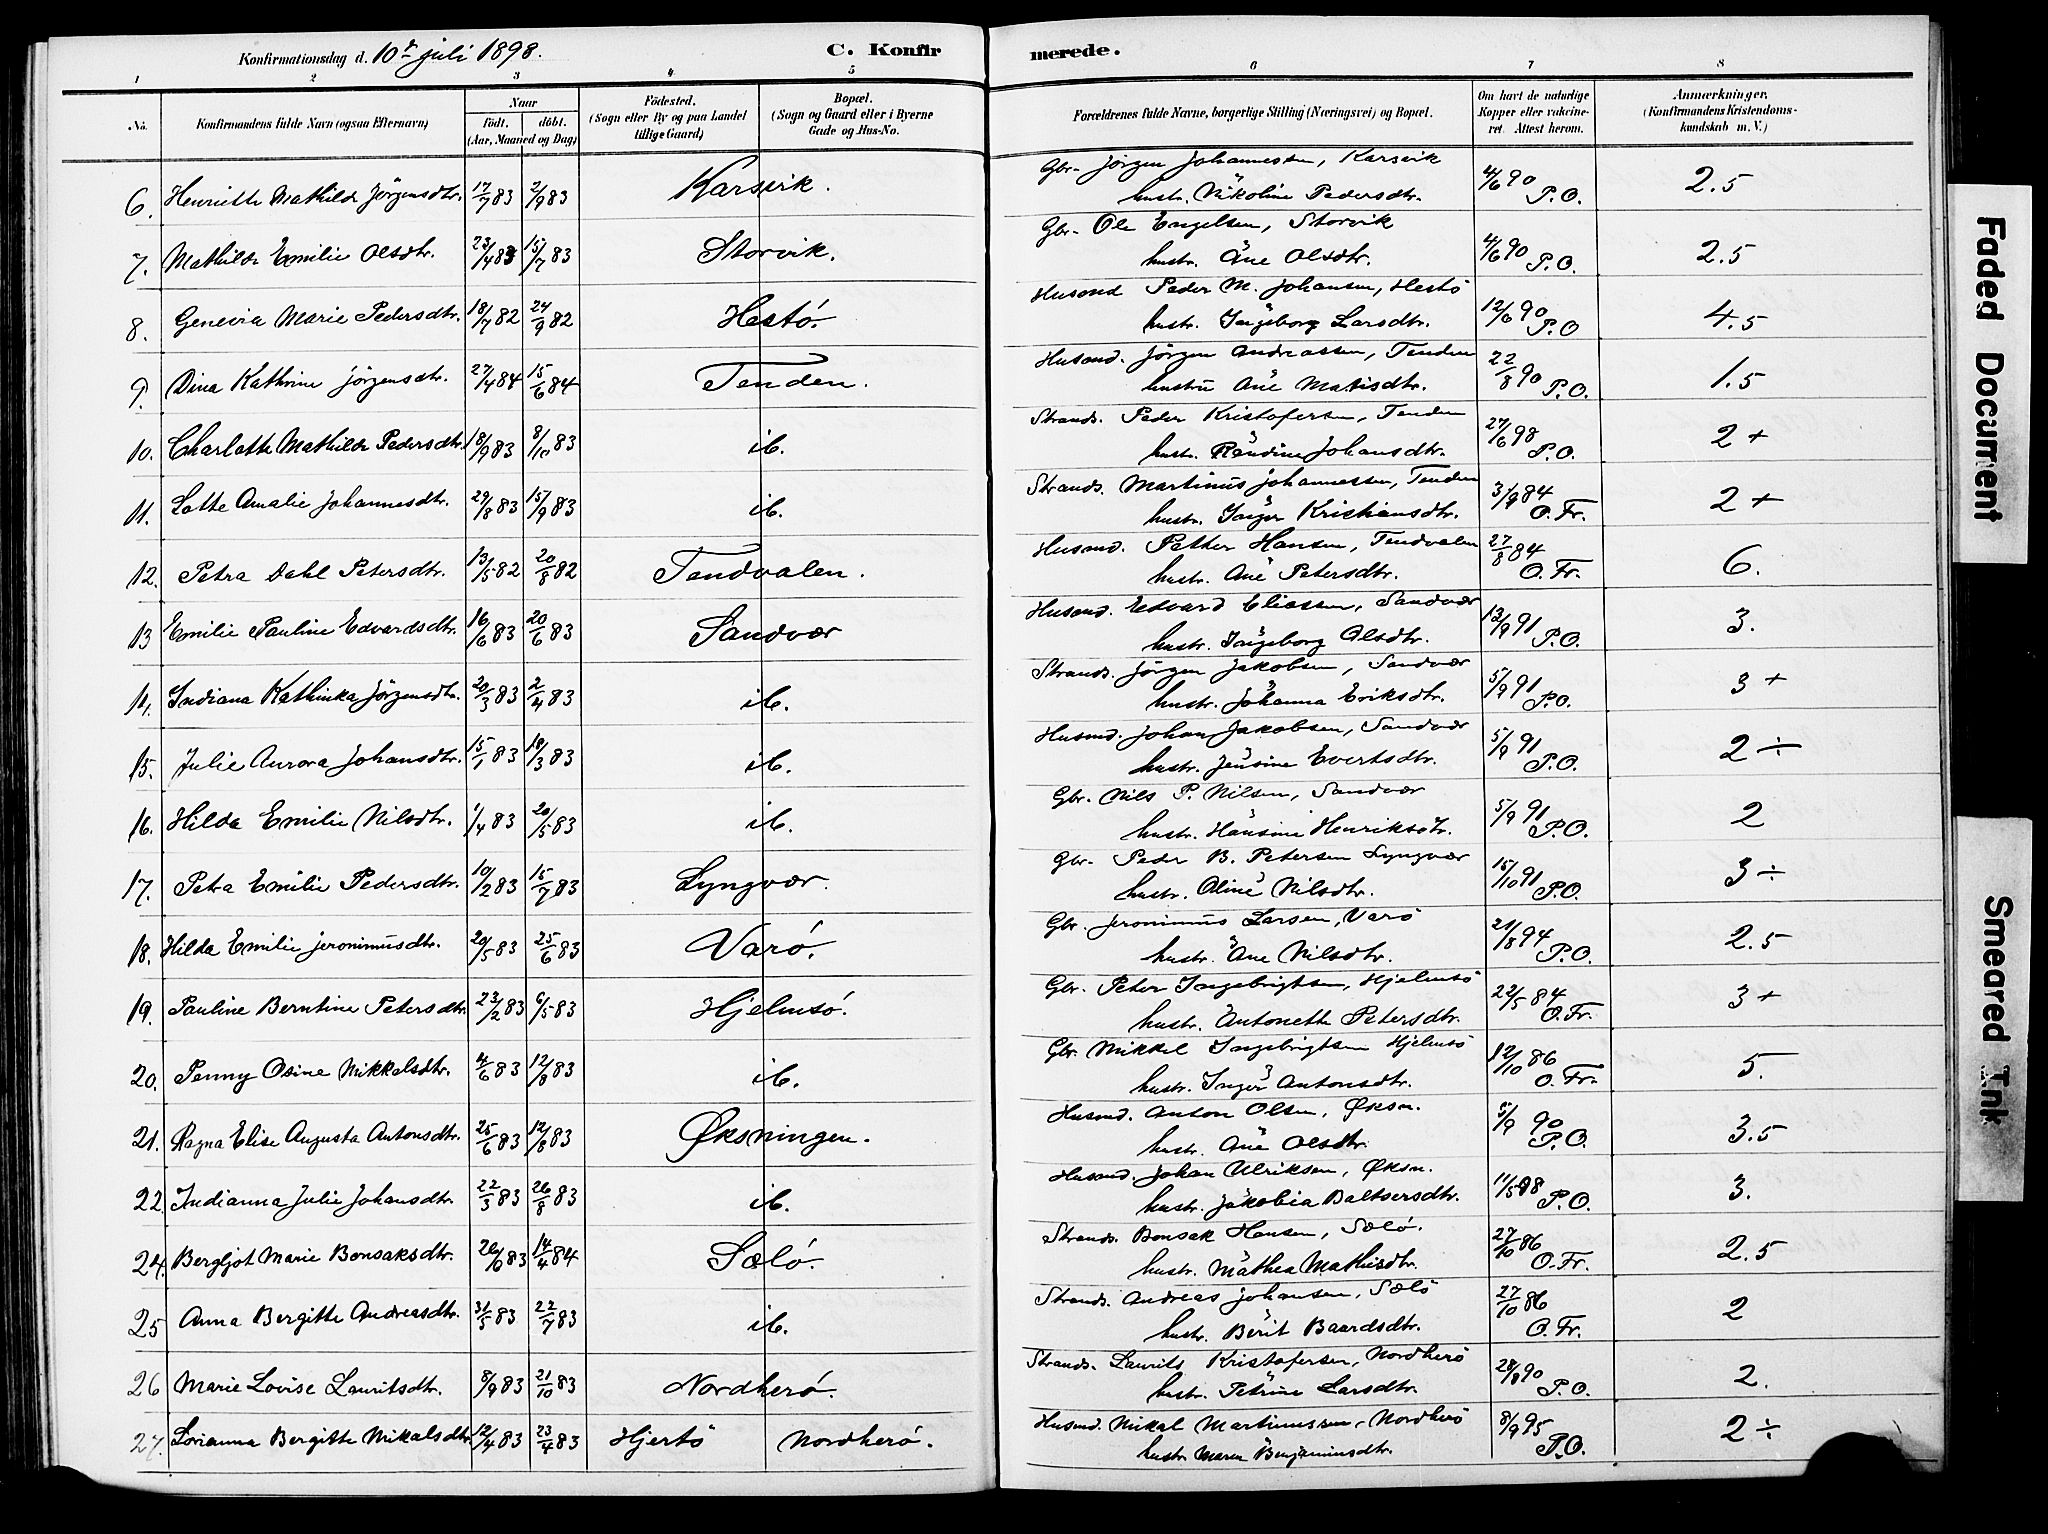 Konfirmationsdag d. 10de juli 1898. C. Konfirmerede.
1 2 3 4 5 6 7 8
No. Konfirmandens fulde Navn (ogsaa Efternavn) Naar født. døbt. (Aar, Maaned og Dag) Fødested. (Sogn eller By og paa Landet tillige Gaard) Bopæl. (Sogn og Gaard eller i Byerne Gade og Hus-No. Forældrenes fulde Navne, borgerlige Stilling (Næringsvei) og Bopæl. Om havt de naturlige Kopper eller vaksineret. Attest herom. Anmærkninger. (Konfirmandens Kristendomskundskab m. V.)
6. Henriette Mathilde Jörgensdtr. 17/7 83 2/9 83 Karsvik. Gbr. Jörgen Johannessen, Karsvik
hustr. Nikoline Pedersdtr. 4/6 90 P.O. 2.5
7. Mathilde Emilie Olsdtr. 23/4 83 15/7 83 Storvik. Gbr. Ole Engelsen, Storvik
hustr. Ane Olsdtr. 4/6 90 P.O. 2.5
8. Genevia Marie Pedersdtr. 18/7 82 24/9 82 Hestö. Husmd Peder M. Johansen, Hestö
hustr. Ingeborg Larsdtr. 12/6 90 P.O 4.5
9. Dina Kathrine Jörgensdtr. 27/4 84 15/6 84 Tenden. Husmd. Jörgen Andreassen, Tenden
hustru Ane Matisdtr. 22/8 90 P.O. 1.5
10. Charlotte Mathilde Pedersdtr. 18/9 83 8/10 83 ib. Strands. Peder Kristofersen, Tenden
hustr. Randine Johansdtr. 27/6 98 P.O. 2+
11. Lotte Amalie Johannesdtr. 29/8 83 15/9 83 ib. Strands. Martinus Johannessen, Tenden
hustr. Inger Kristiansdtr. 3/9 84 O.Fr. 2+
12. Petra Dahl Petersdtr. 13/5 82 20/8 82 Tendvalen. Husmd. Petter Hansen, Tendvalen
hustr. Ane Petersdtr. 27/8 84 O.Fr. 6.
13 Emilie Pauline Edvardsdtr. 16/6 83 20/6 83 Sandvær Husmd. Edvard Eliassen, Sandvær
hustr. Ingeborg Olsdtr. 12/9 91 P.O. 3.
14. Indiana Kathinka Jörgensdtr. 20/3 83 2/4 83 ib. Strands. Jörgen Jakobsen, Sandvær
hustr. Johanna Eriksdtr. 5/9 91 P.O. 3+
15. Julie Aurora Johansdtr. 15/1 83 18/3 83 ib. Husmd. Johan Jakobsen, Sandvær
hustr. Jensine Evertsdtr. 5/9 91 P.O. 2÷
16. Hilda Emilie Nilsdtr. 1/4 83 20/5 83 ib. Gbr. Nils P. Nilsen, Sandvær
hustr. Hansine Henriksdtr. 5/9 91 P.O. 2
17. Petra Emilie Pedersdtr. 10/2 83 15/7 83 Lyngvær. Gbr. Peder B. Petersen Lyngvær
hustr. Oline Nilsdtr. 15/10 91 P.O. 3÷
18. Hilda Emilie Jeronimusdtr. 20/5 83 25/6 83 Varö. Gbr. Jeronimus Larsen, Varö
hustr. Ane Nilsdtr. 21/8 94 P.O. 2.5
19. Pauline Berntine Petersdtr. 23/2 83 6/5 83 Hjelmsö. Gbr. Peter Ingebrigtsen, Hjelmsö
hustr. Antonette Petersdtr. 22/5 84 O.Fr. 3+
20. Penny Osine Mikkelsdtr. 4/6 83 12/8 83 ib. Gbr. Mikkel Ingebrigtsen Hjelmsö
hustr. Inger Antonsdtr. 12/10 86 O.Fr. 5.
21. Ragna Elise Augusta Antonsdtr. 25/6 83 12/8 83 Øksningen. Husmd. Anton Olsen, Øksn.
hustr. Ane Olsdtr. 5/9 90 P.O. 3.5
22. Indianna Julie Johansdtr. 22/3 83 26/8 83 ib. Husmd. Johan Ulriksen, Øksn.
hustr. Jakobia Baltsersdtr. 11/5 98 P.O. 3.
24. Bergljot Marie Bonsaksdtr. 14/4 84 Sælö. Strands. Bonsak Hansen, Sælö.
hustr. Mathea Mathisdtr. 27/10 86 O.Fr. 2.5
25 Anna Bergitte Andreasdtr. 31/5 83 22/7 83 ib. Strands. Andreas Johansen, Sælö
hustr. Berit Baardsdtr. 27/10 86 O.Fr. 2
26 Marie Lovise Lauritsdtr. 8/9 83 21/10 83 Nordherö. Strands. Laurits Kristofersen, Nordherö
hustr. Petrine Larsdtr. 28/8 90 P.O. 2.
27. Lorianna Bergitte Mikalsdtr. 12/4 83 23/4 83 Hjertö Nordherö. Husmd. Mikal Martinussen, Nordherö
hustr Maren Benjaminsdtr. 8/9 95 P.O. 2÷
Faded Document
Smeared Ink